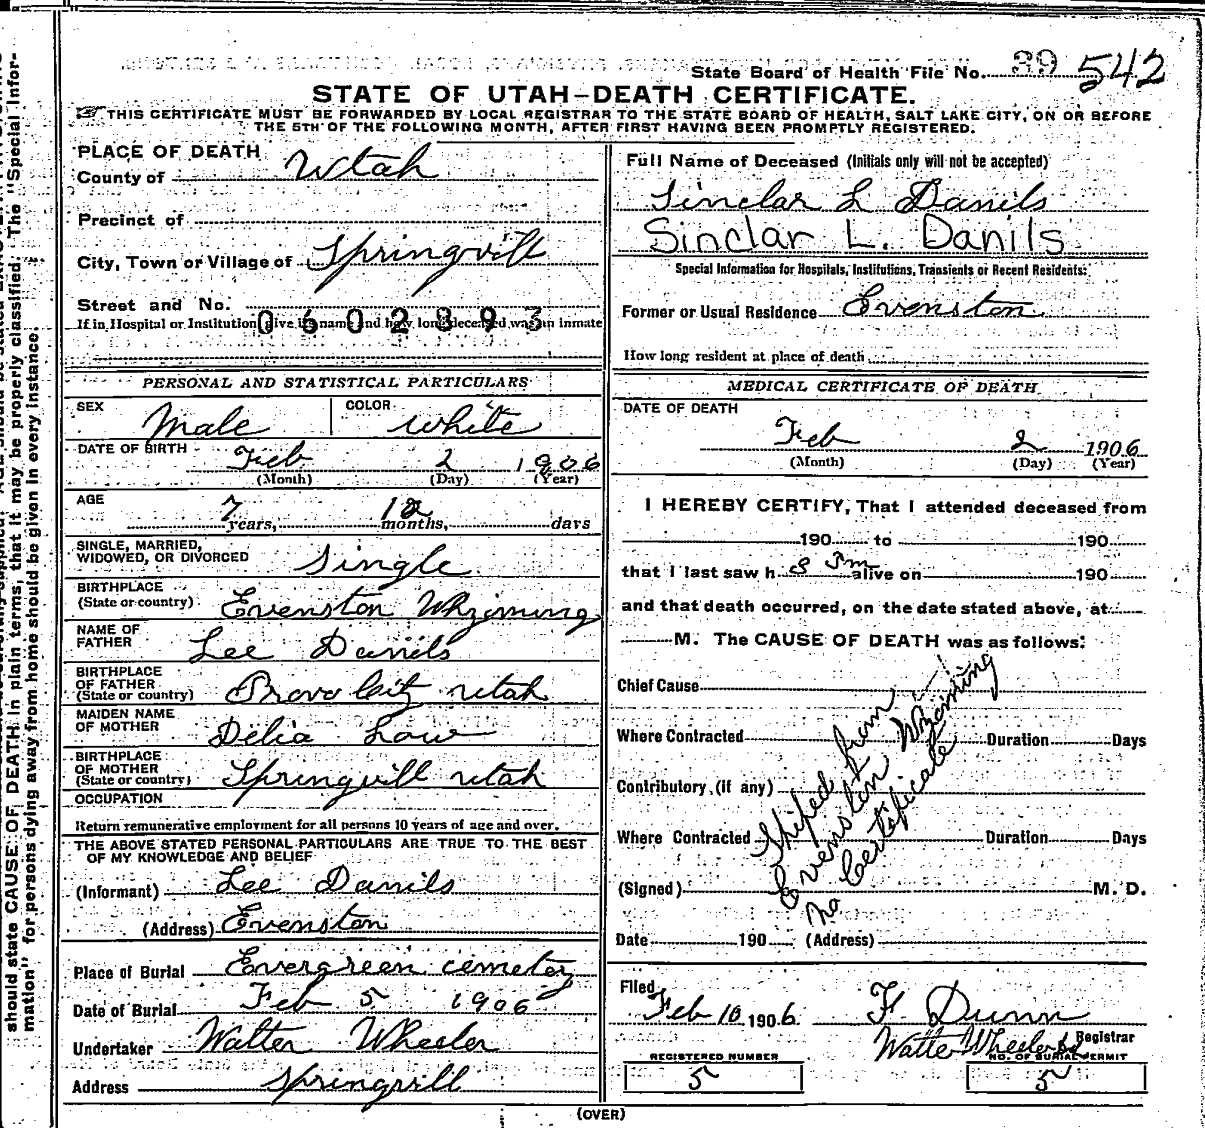 State Board of Health File No. 39 542
STATE OF UTAH—DEATH CERTIFICATE.
THIS CERTIFICATE MUST BE FORWARDED BY LOCAL REGISTRAR TO THE STATE BOARD OF HEALTH, SALT LAKE CITY, ON OR BEFORE
THE 5TH OF THE FOLLOWING MONTH, AFTER FIRST HAVING BEEN PROMPTLY REGISTERED.
PLACE OF DEATH
County of Utah
Precinct of
City, Town or Village of Springvill
Street and No.
0602893
If in Hospital or Institution give its name and how long deceased was an inmate
PERSONAL AND STATISTICAL PARTICULARS
SEX Male
COLOR white
DATE OF BIRTH Feb 2 1906
(Month) (Day) (Year)
AGE 7 years, 12 months, days
SINGLE, MARRIED,
WIDOWED, OR DIVORCED Single
BIRTHPLACE
(State or country) Evenston Whziming
NAME OF
FATHER Lee Danils
BIRTHPLACE
OF FATHER
(State or country) Provo City utah
MAIDEN NAME
OF MOTHER Delia Law
BIRTHPLACE
OF MOTHER
(State or country) Springvill utah
OCCUPATION
Return remunerative employment for all persons 10 years of age and over.
THE ABOVE STATED PERSONAL PARTICULARS ARE TRUE TO THE BEST
OF MY KNOWLEDGE AND BELIEF
(Informant) Lee Danils
(Address) Evenston
Place of Burial Evergreen cemetery
Date of Burial Feb 5 1906
Undertaker Walter Wheeler
Address Springvill
Full Name of Deceased (Initials only will not be accepted)
Sinclar L Danils
Sinclar L. Danils
Special Information for Hospitals, Institutions, Transients or Recent Residents:
Former or Usual Residence Evenston
How long resident at place of death
MEDICAL CERTIFICATE OF DEATH
DATE OF DEATH
Feb 2 1906
(Month) (Day) (Year)
I HEREBY CERTIFY, That I attended deceased from
190 to 190
that I last saw h alive on 190
and that death occurred, on the date stated above, at
M. The CAUSE OF DEATH was as follows:
Chief Cause
Where Contracted Duration Days
Contributory (If any)
Where Contracted Duration Days
(Signed) M. D.
Date 190 (Address)
Shiped from
Evenston Whziming
no Certificate
Filed
Feb 10 1906 F. Dunn
Registrar
Walter Wheeler
REGISTERED NUMBER
5
NO. OF BURIAL PERMIT
5
(OVER)
should state CAUSE OF DEATH in plain terms, that it may be properly classified. The "Special Infor-
mation" for persons dying away from home should be given in every instance.